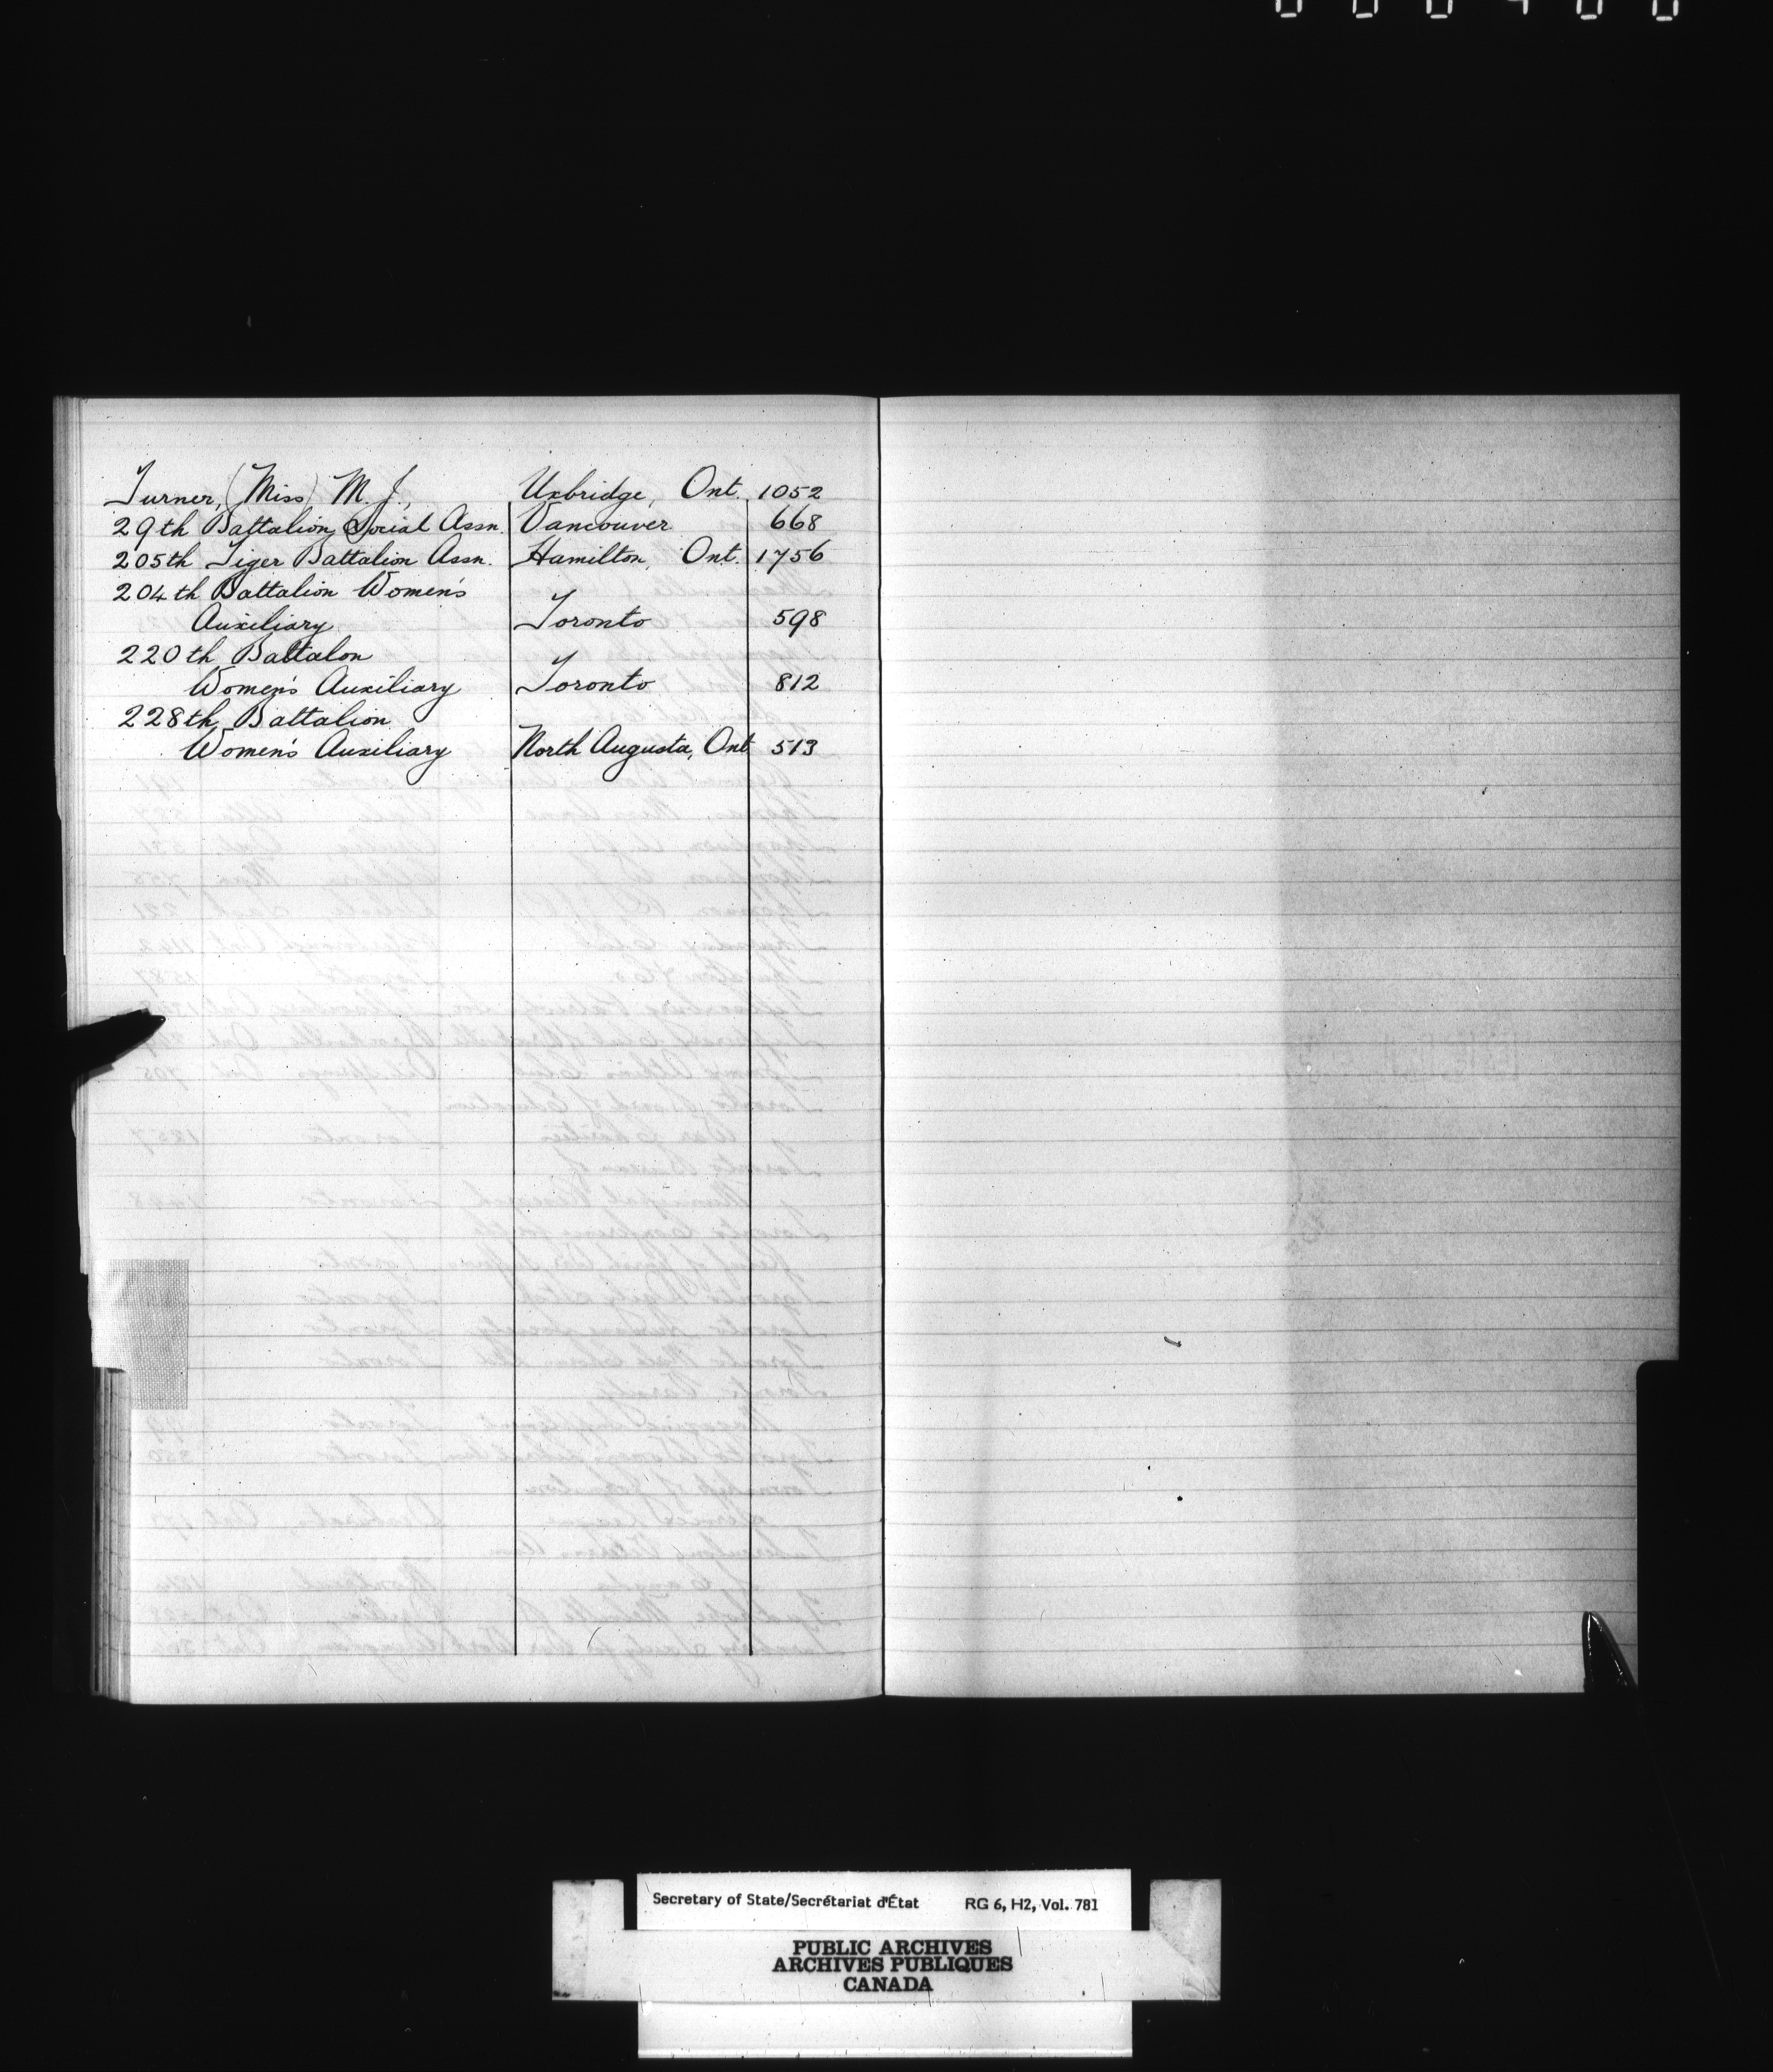 Turner, (Miss) M. J., Uxbridge, Ont. 1052
29th Battalion Social Assn. Vancouver 668
205th Tiger Battalion Assn. Hamilton, Ont. 1756
204th Battalion Women's
Auxiliary Toronto 598
220th Battalon
Women's Auxiliary Toronto 812
228th Battalion
Women's Auxiliary North Augusta, Ont 513
Secretary of State/Secrétariat d'État RG 6, H2, Vol. 781
PUBLIC ARCHIVES
ARCHIVES PUBLIQUES
CANADA